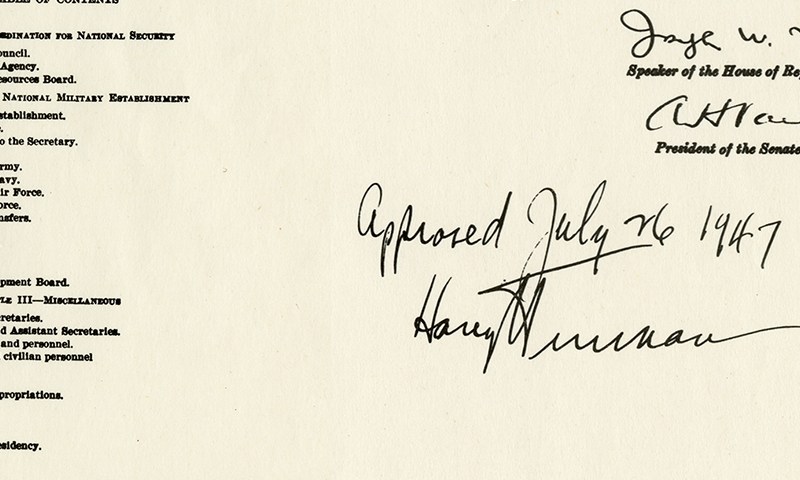 TABLE OF CONTENTS
RDINATION FOR NATIONAL SECURITY
ouncil.
Agency.
esources Board.
NATIONAL MILITARY ESTABLISHMENT
stablishment.
o the Secretary.
rmy.
avy.
ir Force.
orce.
nsfers.
pment Board.
TLE III—MISCELLANEOUS
cretaries.
d Assistant Secretaries.
and personnel.
civilian personnel
propriations.
esidency.
Joseph W.
Speaker of the House of Rep
President of the Senate
Approved July 26 1947
Harry Truman